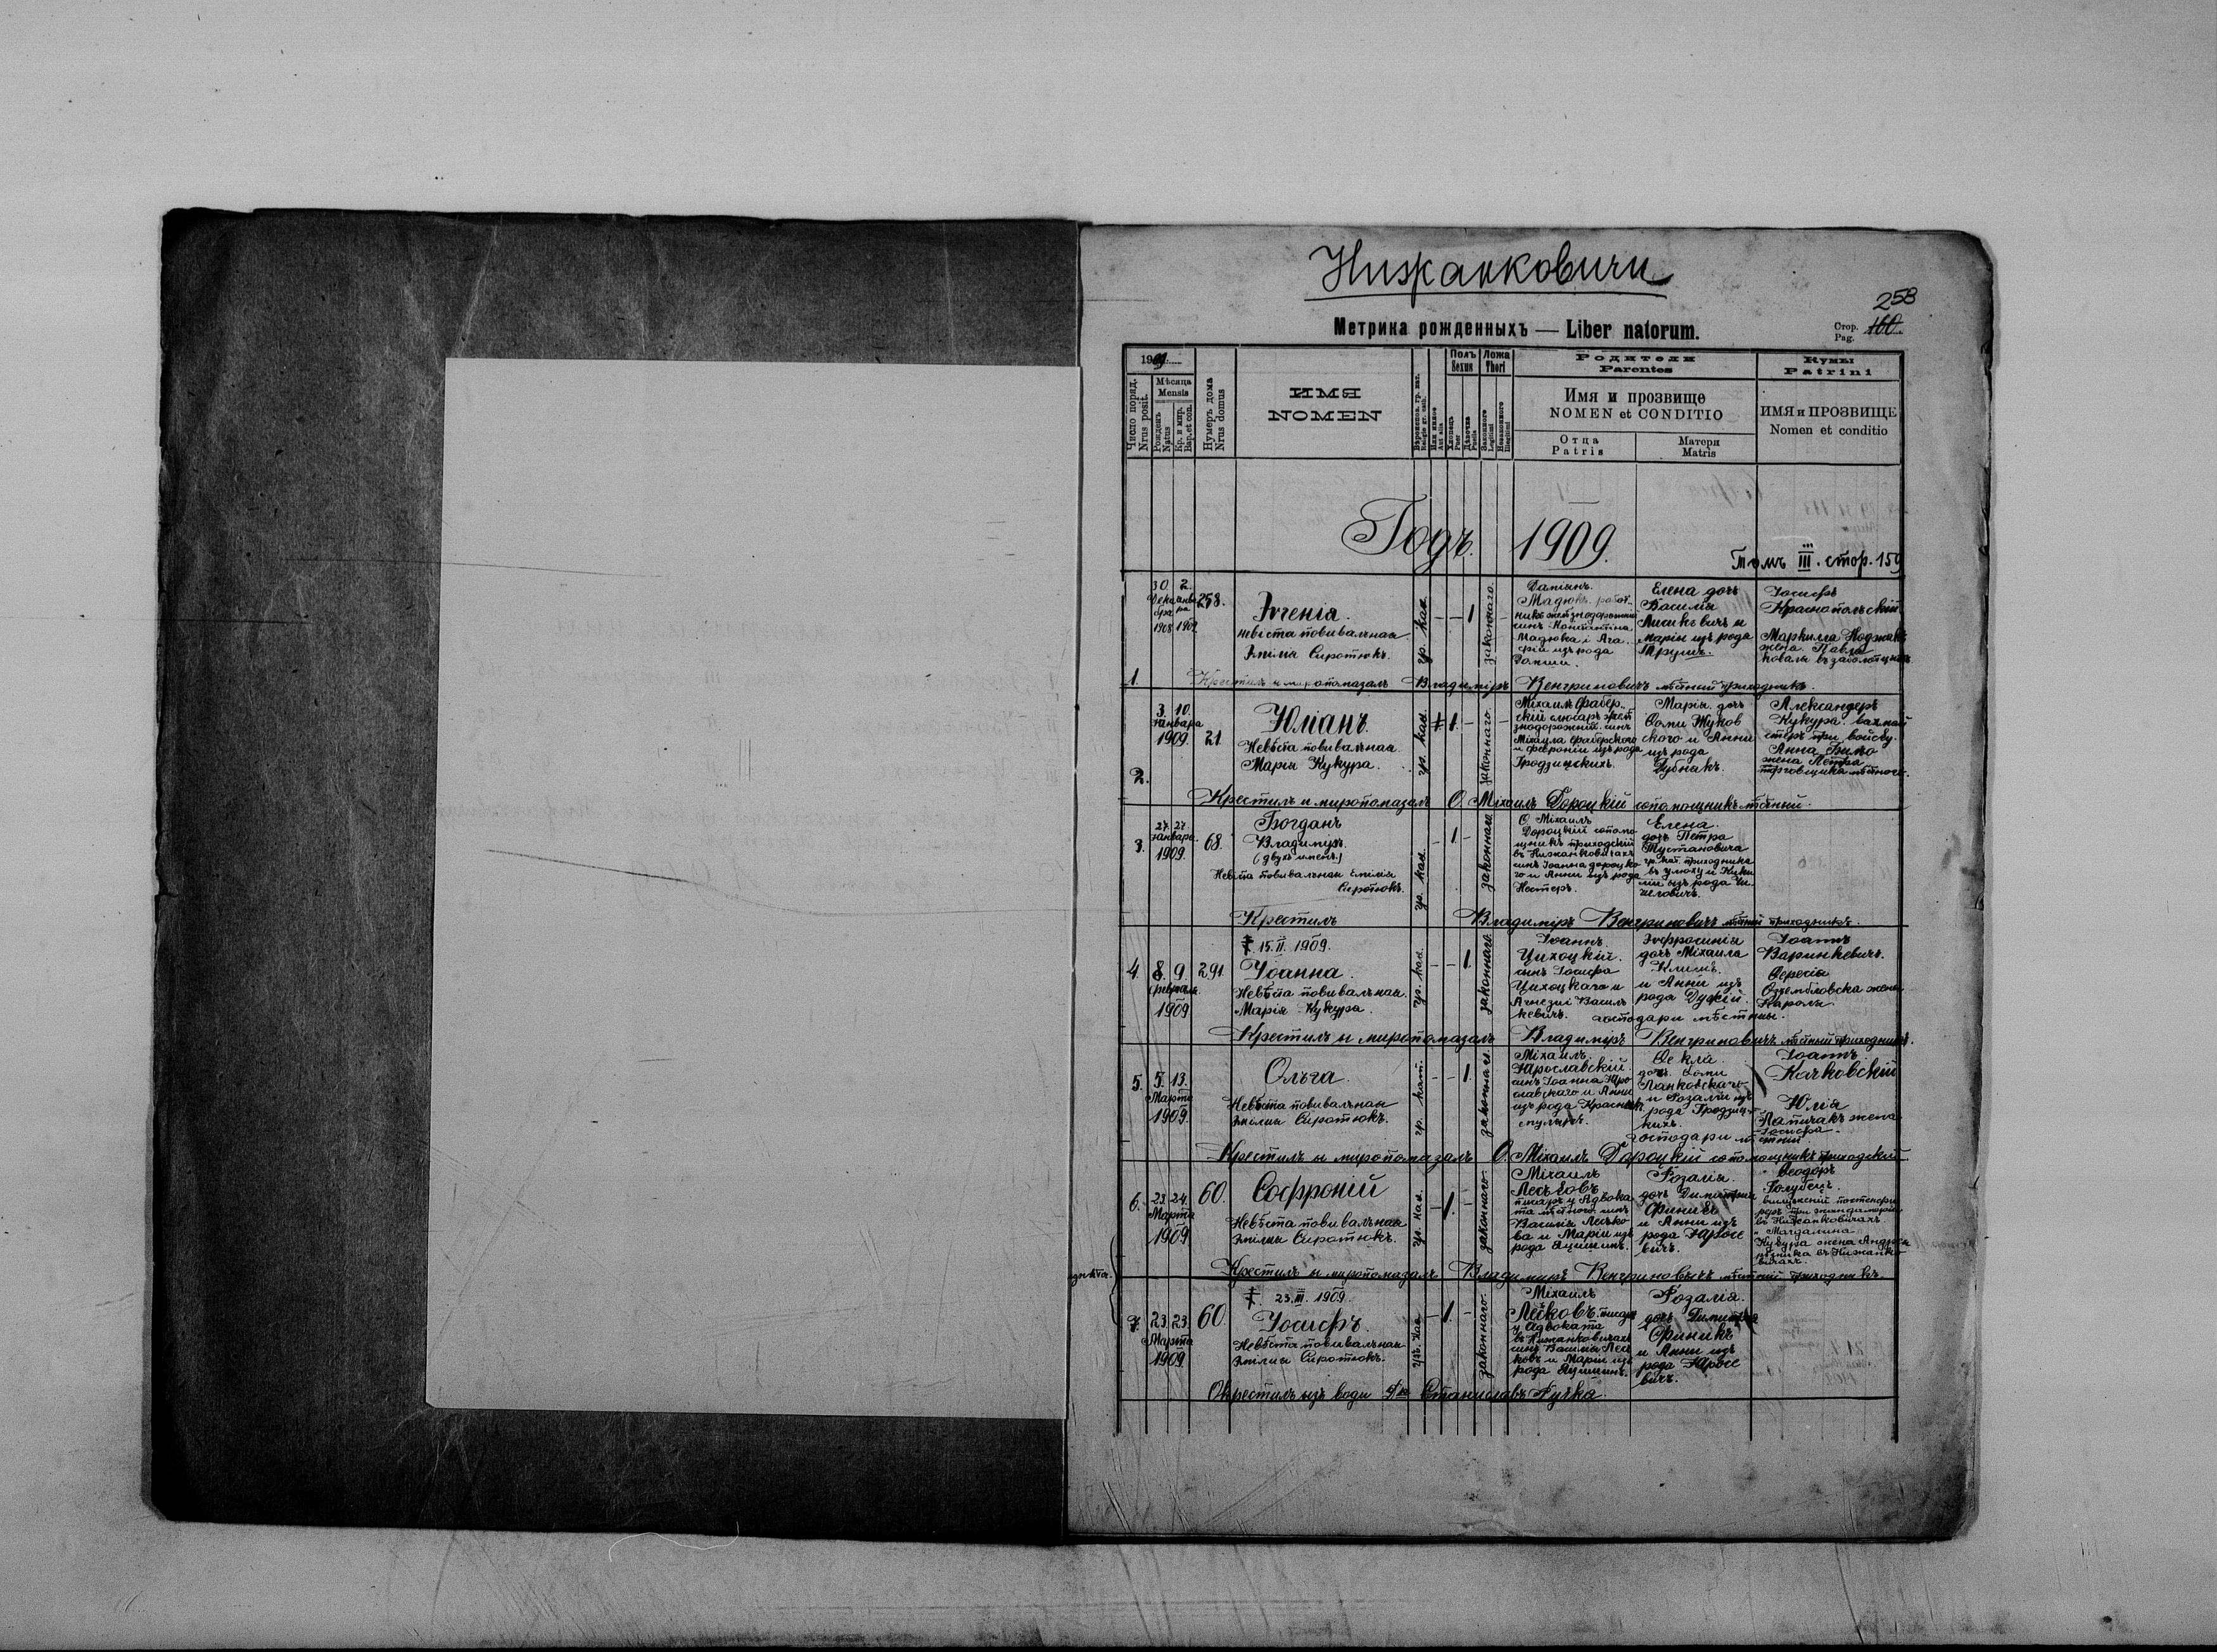 Нижанковичи
258
Метрика рожденныхъ — Liber natorum.
Стор. Pag. 160
1909
Число поряд. Nrus posit.
Мѣсяца Mensis
Рожденъ Natus
Кр. и мир. Bap. et con.
Нумеръ дома Nrus domus
ИМЯ
NOMEN
Или иное Aut alia
Полъ Sexus
Хлопецъ Puer
Дѣвочка Puella
Ложа Thori
Законного Legitimi
Незаконного Illegitimi
Родители
Parentes
Имя и прозвище
NOMEN et CONDITIO
Отца
Patris
Матери
Matris
Кумы
Patrini
ИМЯ и ПРОЗВИЩЕ
Nomen et conditio
Годъ 1909.
Томъ III. стор. 159
1.
30 2
1908 1909
258.
Евгенія.
невѣста повивальная
Емілія Сиротюкъ.
гр. кат.
1
законнаго.
Даміянъ
Мадюкъ работ-
никъ желѣзнодорожный
синъ Константина
Мадюка і Ага-
фіи изъ рода
Елена дочь
Василія
Лиськевичъ и
Маріи изъ рода
Трушъ.
Іосифъ
Краснопольскій
жена Павла
Крестилъ и миропомазалъ Владиміръ Венгриновичъ мѣстный приходникъ.
2.
3. 10.
Января
1909.
21
Юліанъ.
Невѣста повивальная
Марія Кукура.
гр. кат.
1
законнаго.
Міхаилъ Фабер-
скій слюсаръ желѣ-
знодорожный синъ
Міхаила Фаберского
и Февроніи изъ рода
Гродзицкихъ.
Марія дочь
Ѳомы Жуков
ского и Анни
изъ рода
Дубнякъ.
Александеръ
Кукура вахмай
стеръ при войску.
Анна Билко
жена Петра
торговщика мѣстного.
Крестилъ и миропомазалъ О. Міхаилъ Дороцкій сопомощникъ мѣстный.
3.
27. 27.
Января.
1909.
68.
Богданъ
Владиміръ.
(двухъ именъ.)
Невѣста повивальная Емілія
Сиротюкъ.
гр. кат.
1
законнаго
О. Міхаилъ
Дороцкій сопомо
щникъ приходскій
въ Нижанковичахъ
синъ Іоанна Дороцко
го и Анни изъ рода
Нестеръ.
Елена
дочь Петра
Тустановича
гр. кат. приходника
Крестилъ Владиміръ Венгриновичъ мѣстный приходникъ.
4.
8. 9.
Февраля.
1909
291.
† 15. II. 1909.
Іоанна.
Невѣста повивальная.
Марія Кукура.
гр. кат.
1
законнаго.
Іоаннъ
Цихоцкій.
синъ Іосифа
Цихоцкаго и
Агнезиі Василь
кевичъ.
Евфросинія
дочь Міхаила
Климъ.
и Анни изъ
рода Дудкій.
господари мѣстныи.
Іоаннъ
Варинкевичъ.
жена
Каролы.
Крестилъ и миропомазалъ Владиміръ Венгриновичъ мѣстный приходникъ.
5.
5. 13.
Марта
1909.
Ольга.
Невѣста повивальная
Емілия Сиротюкъ.
гр. кат.
1
законнаго
Міхаилъ
Ярославскій.
синъ Іоанна Яро
славского и Анни
изъ рода
Ѳекла
дочь Ѳомы
Ланковскаго
и Розаліи изъ
рода Гродзиц-
кихъ.
господари мѣстныи
Іоаннъ
Качковскій
Юлія
жена
Іосифа.
Крестилъ и миропомазалъ О. Міхаилъ Дороцкій сопомощникъ приходскій.
6.
23. 24.
Марта
1909
60.
Софроній
Невѣста повивальная
Емілия Сиротюкъ.
гр. кат.
1.
законнаго.
Міхаилъ
Леськовъ
писаръ у Адвока
та мѣстного синъ
Василія Лесько
ва и Маріи изъ
рода Яцишинъ.
Розалія.
дочь Димитрія
Финикъ
и Анни изъ
рода Яросе
вичъ.
Ѳеодоръ
Голубецъ.
въ Нижанковичахъ
Магдалина
Кукура жена Андрея
въ Нижанко
вичахъ.
Крестилъ и миропомазалъ Владиміръ Венгриновичъ мѣстный приходникъ.
7.
23. 23.
Марта
1909.
60.
† 23. III. 1909.
Іосифъ.
Невѣста повивальная
Емілия Сиротюкъ.
гр. кат.
1
законнаго.
Міхаилъ
Леськовъ писаръ
у Адвоката
въ Нижанковичахъ
синъ Василія Лесь
ковъ и Маріи изъ
рода Яцишинъ.
Розалія.
дочь Димитрія
Финикъ
и Анни изъ
рода Яросе
вичъ.
Окрестилъ изъ води Станиславъ Ручка.